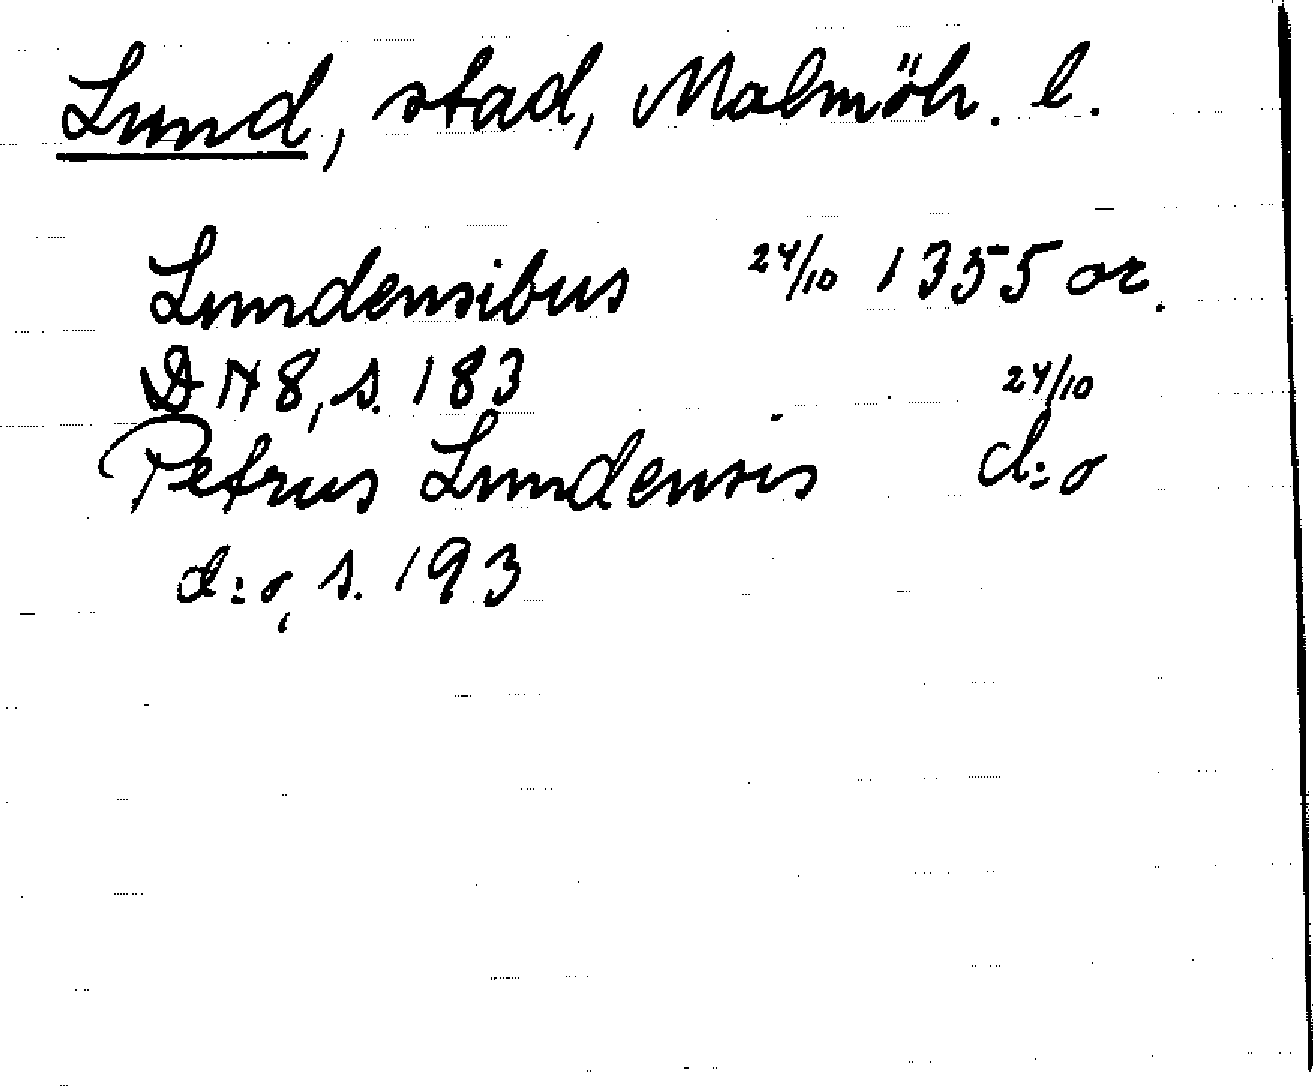 Lund, stad, Malmöh. l.
Lundensibus 24/10 1355 or.
DN 8, s. 183 24/10
Petrus Lundensis d:o
d:o, s. 193